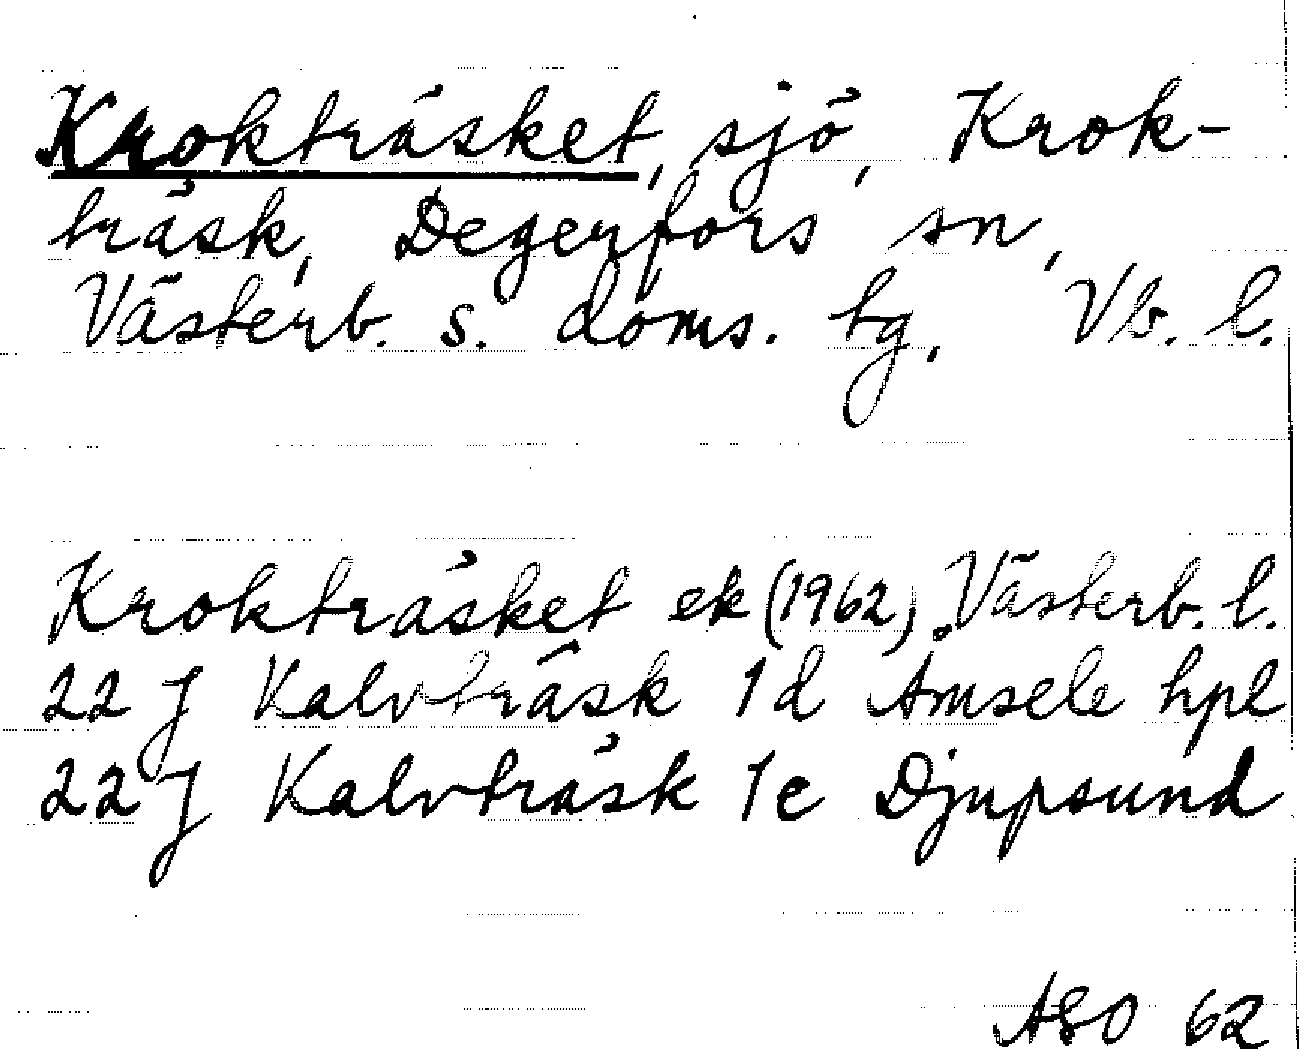 Krokträsket, sjö, Krok-
träsk, Degerfors sn,
Västerb. s. doms. tg, Vb. l.
Krokträsket ek (1962), Västerb. l.
22 J Kalvträsk 1d Åmsele hpl
22 J Kalvträsk 1e Djupsund
ASO 62